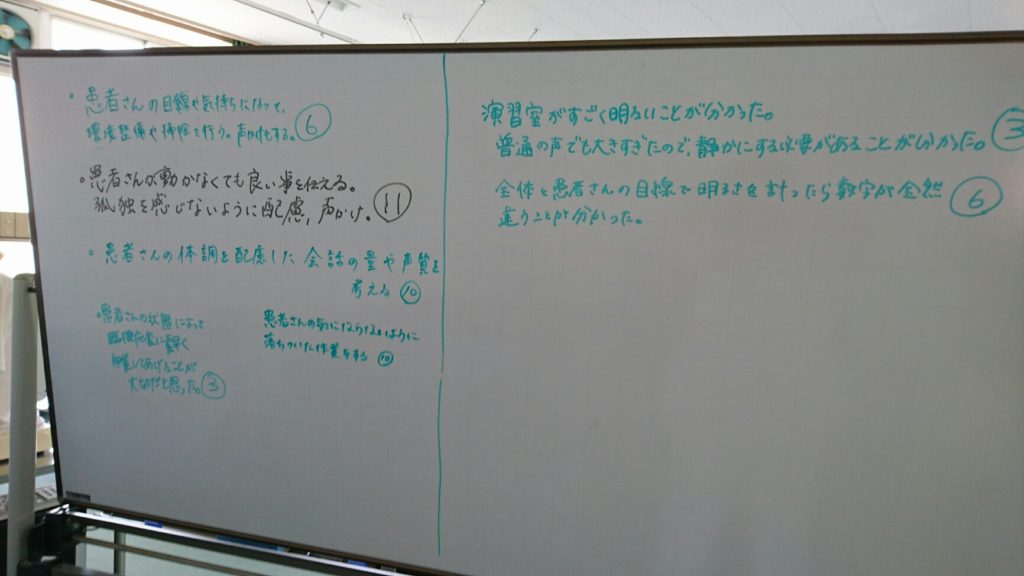 ・患者さんの目線や気持ちになって、
環境整備や掃除を行う。声かけもする。⑥
・患者さんが動かなくても良い事を伝える。
孤独を感じないように配慮、声かけ。⑪
・患者さんの体調を配慮した会話の量や声質を
考える⑩
・患者さんの状態によって
臨機応変に素早く
してあげることが
大切だと思った。③
患者さんの気にならないように
落ちついた作業をする⑩
演習室がすごく明るいことが分かった。
普通の声でも大きすぎたので、静かにする必要があることが分かった。③
全体と患者さんの目線で明るさを計ったら数字が全然
違うことが分かった。⑥